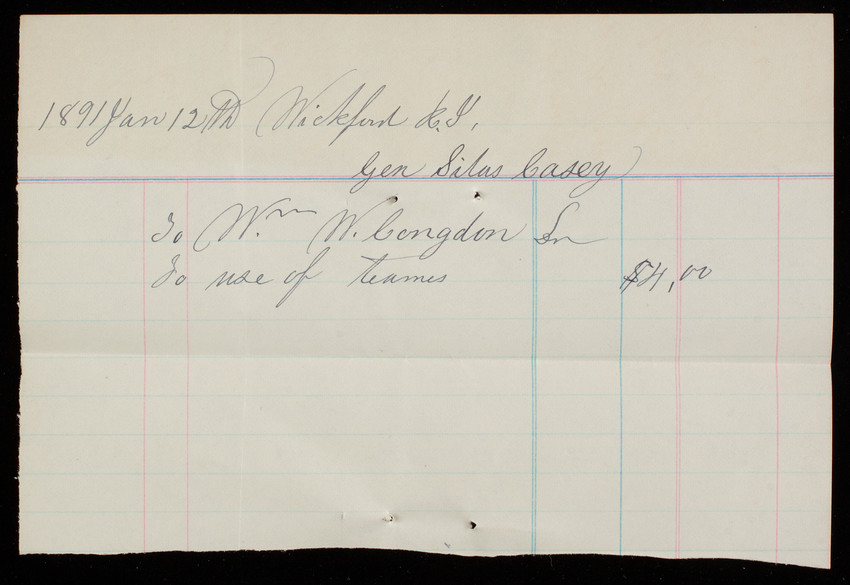 1891 Jan 12th Wickford R.I,
Gen Silas Casey
To Wm W. Congdon Dr
To use of teames $4,00